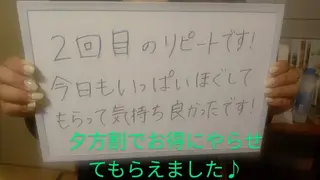 2回目のリピートです!
今日もいっぱいほぐして
もらって気持ち良かったです!
夕方割でお得にやらせ
てもらえました♪